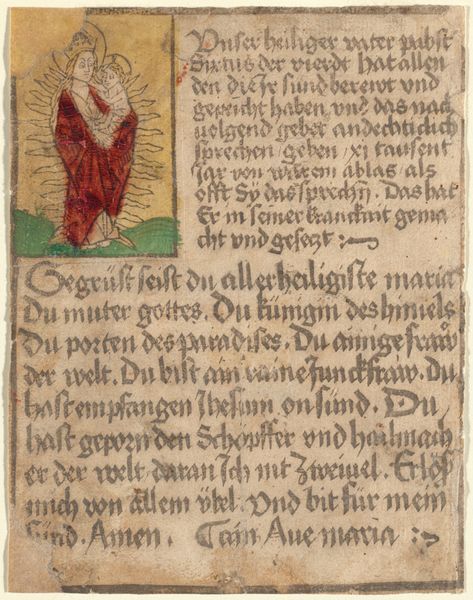 Vnser heiliger vater pabst
Sixtus der vierdt hat allen
den die Jr sund berewt und
gepeicht haben vnd das nach
uolgend gebet andechticlich
sprechen geben xj tausent
jar von warem ablas als
offt Sy das sprechn. Das hat
Er in seiner kranckait gema
cht vnd gesetzt :~
Gegrüst seist du allerheiligiste maria
Du muter gottes. Du künigin des himels
Du porten des paradises. Du ainige fraw
der welt. Du bist ain raine Junckfraw. Du
hast empfangen Jhesum on sünd. Du
hast geporn den Schopffer vnd hailmach
er der welt daran Ich nit Zweiuel. Erlöß
mich von allem übel. Vnd bit für mein
sünd. Amen. Cain Aue maria :~